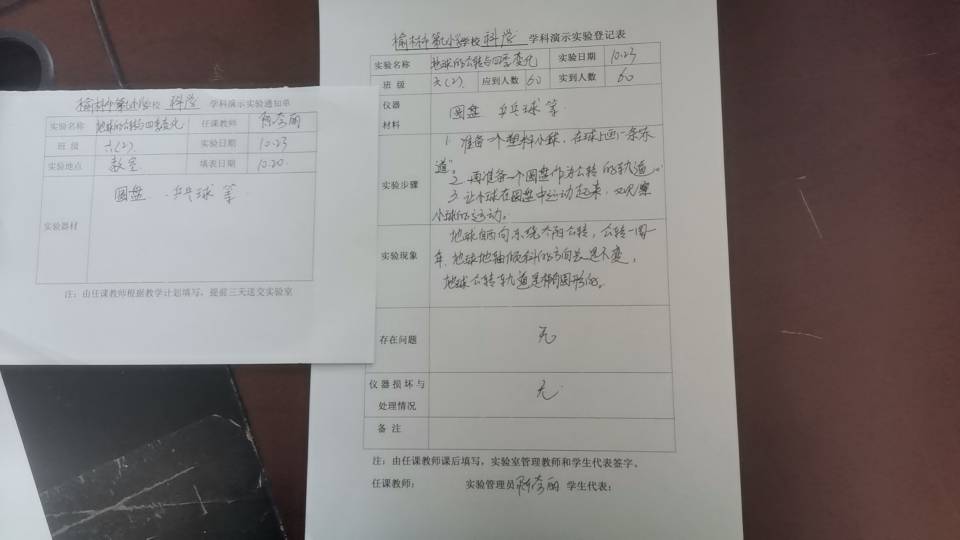 学校 科学 学科演示实验通知单
实验名称 地球的公转与四季变化 任课教师
班 级 六(2) 实验日期 10.23
实验地点 教室 填表日期 10.20
实验器材 圆盘、乒乓球等
注：由任课教师根据教学计划填写，提前三天送交实验室
学校 科学 学科演示实验登记表
实验名称 地球的公转与四季变化 实验日期 10.23
班 级 六(2) 应到人数 60 实到人数 60
仪器
材料
圆盘 乒乓球等
实验步骤
1. 准备一个塑料小球，在球上画一条赤
道。
2. 再准备一个圆盘作为公转的轨道。
3. 让小球在圆盘中运动起来，观察
小球的运动。
实验现象
地球自西向东绕太阳公转，公转一周一
年，地球地轴倾斜的方向总是不变，
地球公转轨道是椭圆形的。
存在问题 无
仪器损坏与
处理情况
无
备 注
注：由任课教师课后填写，实验室管理教师和学生代表签字。
任课教师： 实验管理员 学生代表：